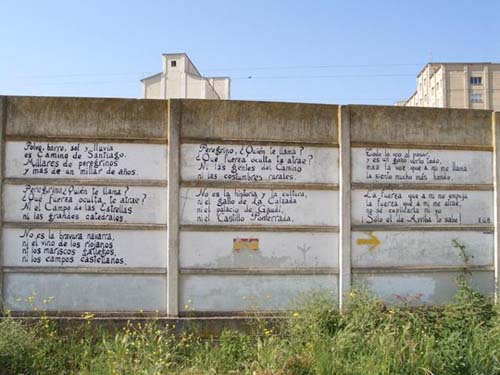 Polvo, barro, sol y lluvia
es Camino de Santiago.
Millares de peregrinos
y más de un millar de años.
Peregrino, ¿Quién te llama?
¿Qué fuerza oculta te atrae?
Ni el Campo de las Estrellas
ni las grandes catedrales.
No es la bravura navarra,
ni el vino de los riojanos
ni los mariscos gallegos
ni los campos castellanos.
Peregrino, ¿Quién te llama?
¿Qué fuerza oculta te atrae?
Ni las gentes del Camino
ni las costumbres rurales.
No es la historia y la cultura,
ni el gallo de La Calzada
ni el palacio de Gaudí,
ni el Castillo Ponferrada.
Todo lo veo al pasar,
y es un gozo verlo todo,
mas la voz que a mi me llama
la siento mucho más hondo.
La fuerza que a mi me empuja
la fuerza que a mi me atrae,
no sé explicarla ni yo
¡Sólo el de Arriba lo sabe!
E.G.B.